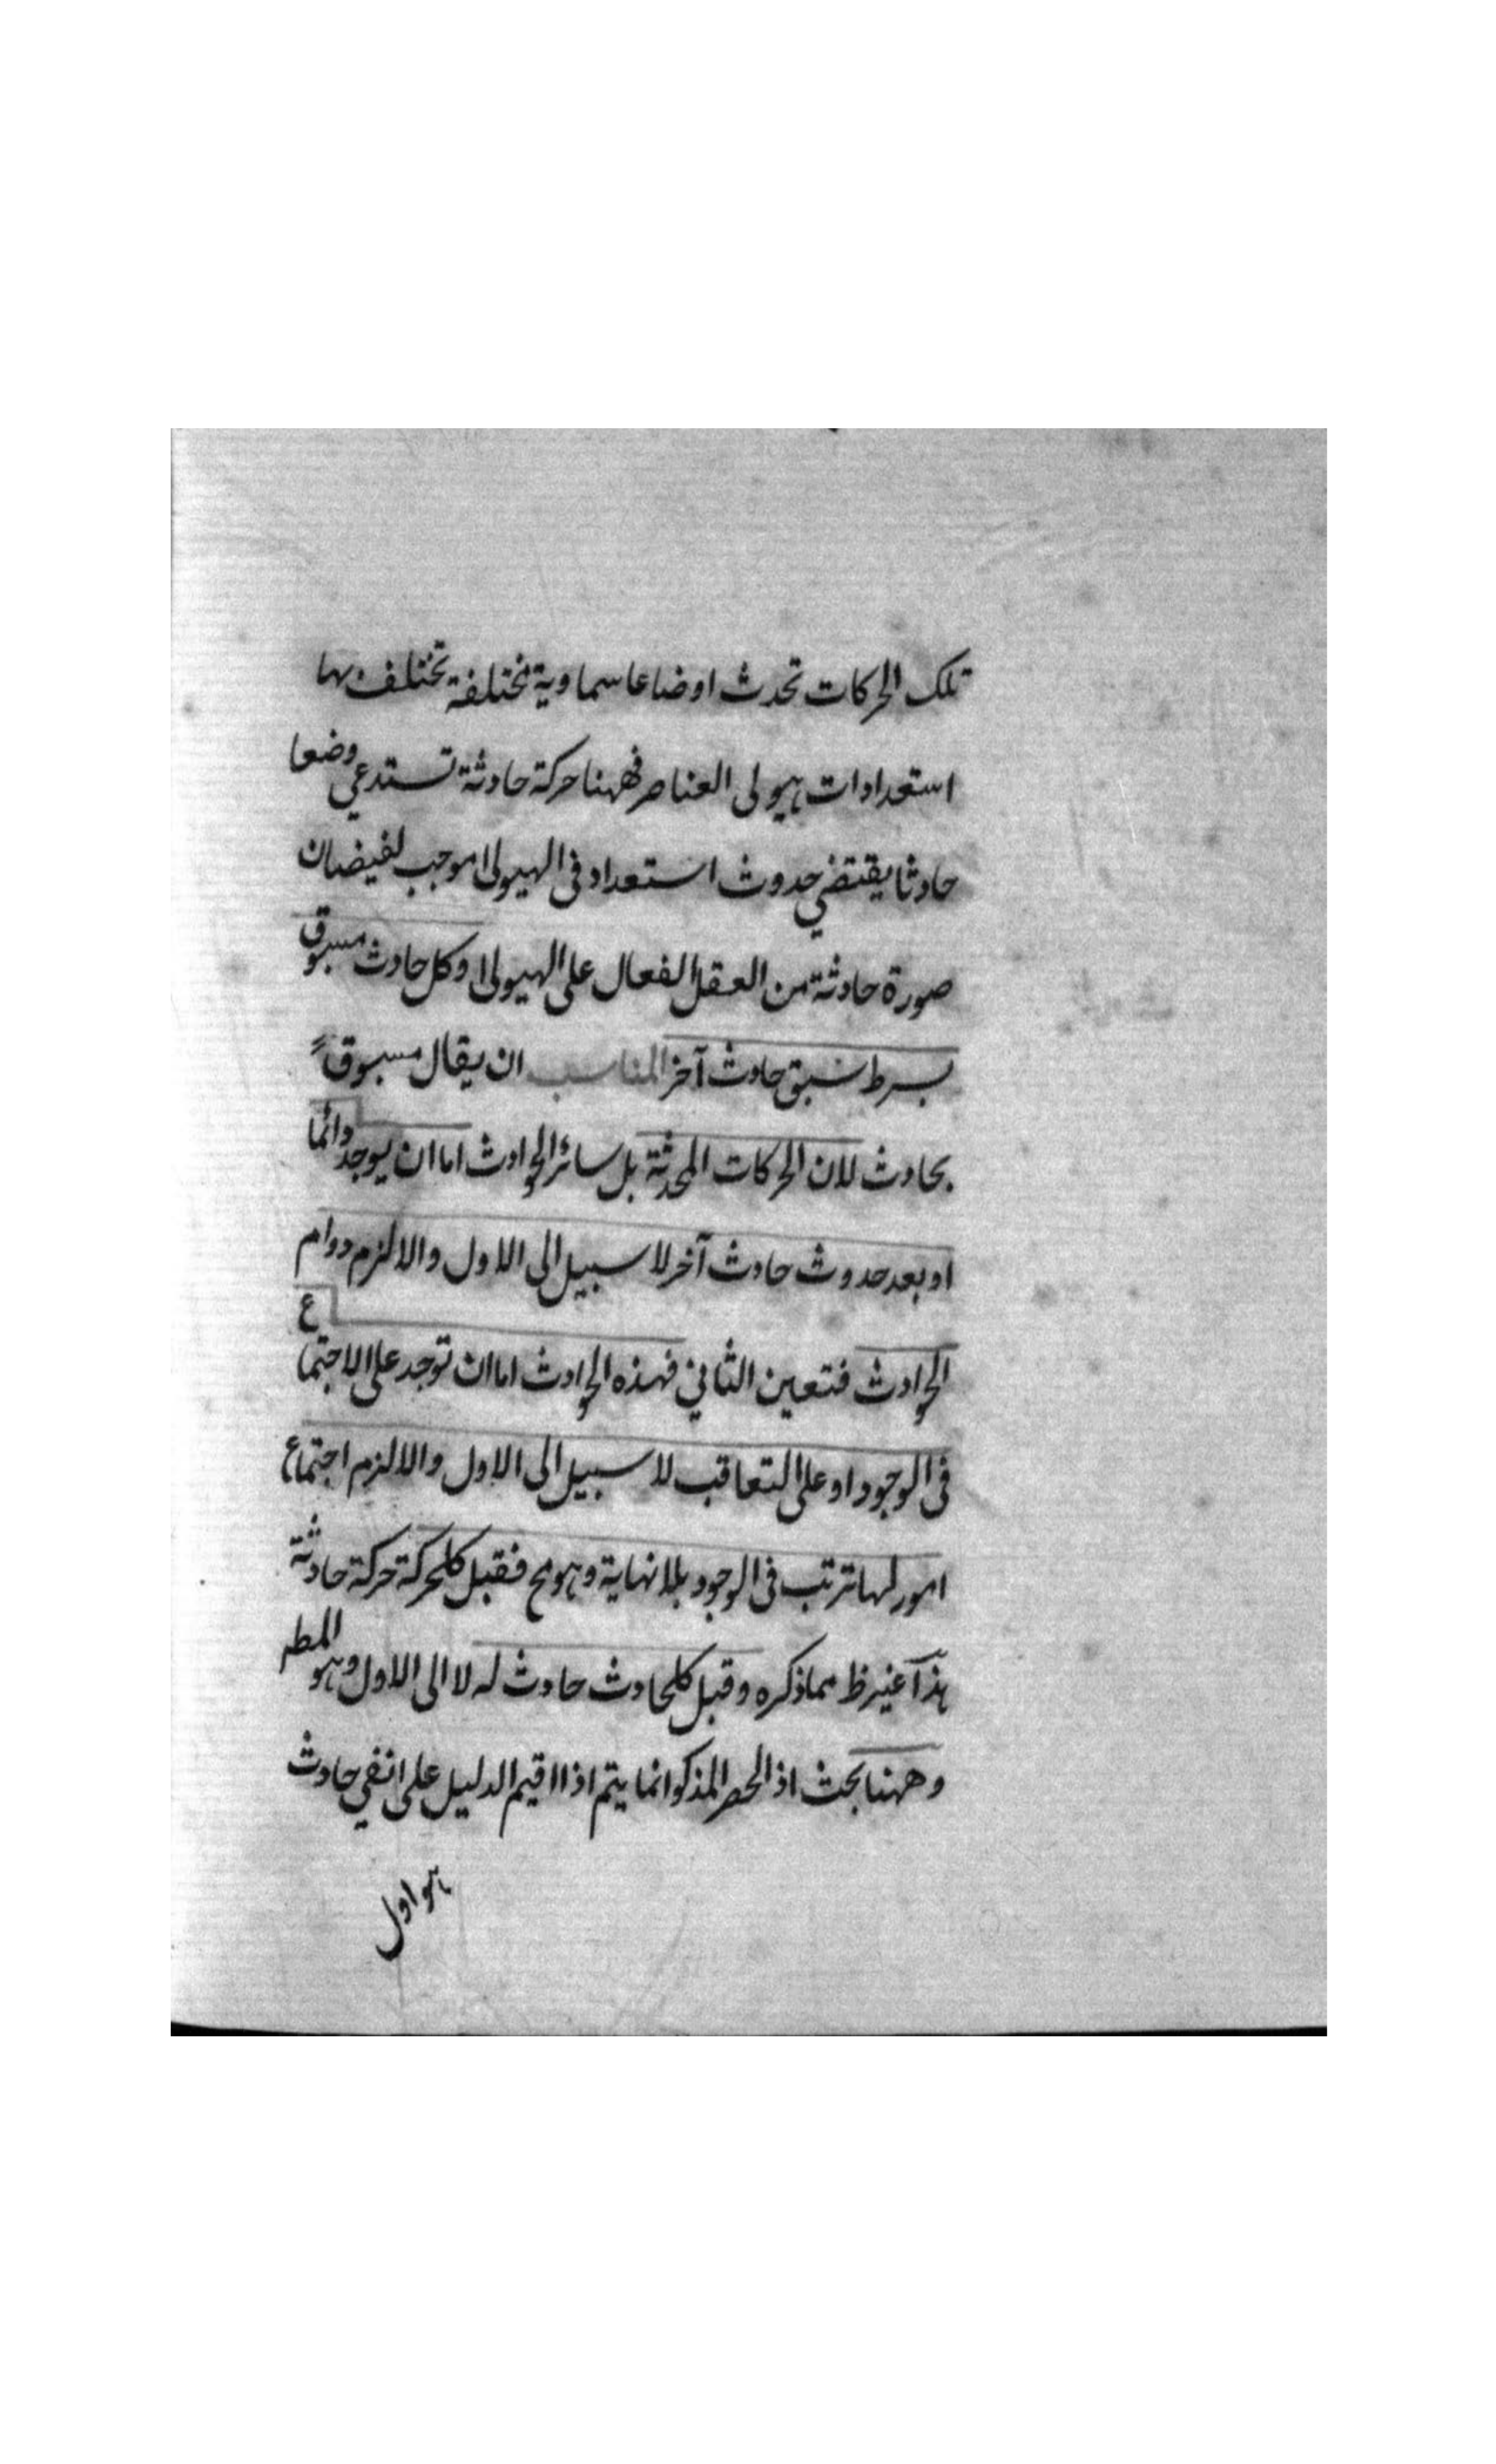 تلك الحركات تحدث اوضاعا سماوية مختلفة تختلف بها
استعدادات هيولى العناصر فههنا حركة حادثة تستدعي وضعا
حادثا يقتضي حدوث استعداد فى الهيولى موجب لفيضان
صورة حادثة من العقل الفعال على الهيولى وكل حادث مسبوق
بسرط سبق حادث آخر المناسب ان يقال مسبوق
بحادث لان الحركات المحدثة بل سائر الحوادث اما ان يوجد دائما
او بعد حدوث حادث آخر لا سبيل الى الاول والا لزم دوام
الحوادث فتعين الثاني فهذه الحوادث اما ان توجد على الاجتماع
فى الوجود او على التعاقب لا سبيل الى الاول والا لزم اجتماع
امور لها ترتب فى الوجود بلا نهاية وهو مح فقبل كلحركة حركة حادثة
هذا غير ظ مما ذكره وقبل كلحادث حادث له لا الى الاول وهو المط
وههنا بحث اذ الحصر المذكو انما يتم اذا اقيم الدليل على انفي حادث
هو اول